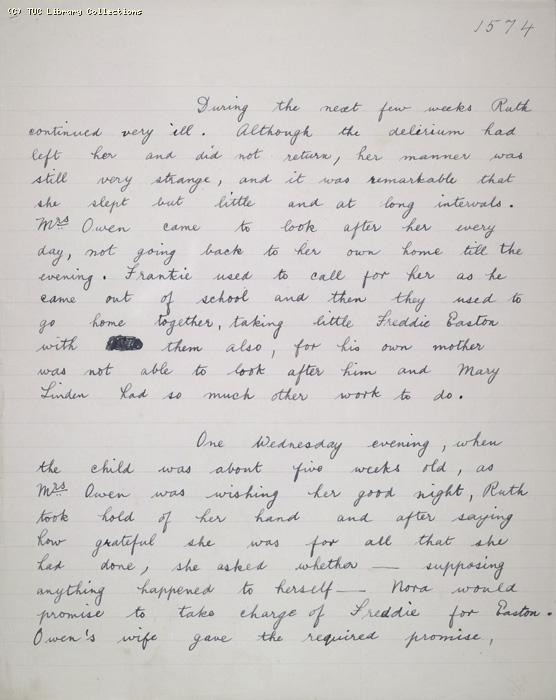 (C) TUC Library Collections
1574
During the next few weeks Ruth
continued very ill. Although the delirium had
left her and did not return, her manner was
still very strange, and it was remarkable that
she slept but little and at long intervals.
Mrs Owen came to look after her every
day, not going back to her own home till the
evening. Frankie used to call for her as he
came out of school and then they used to
go home together, taking little Freddie Easton
with them also, for his own mother
was not able to look after him and Mary
Linden had so much other work to do.
One Wednesday evening, when
the child was about five weeks old, as
Mrs Owen was wishing her good night, Ruth
took hold of her hand and after saying
how grateful she was for all that she
had done, she asked whether — supposing
anything happened to herself — Nora would
promise to take charge of Freddie for Easton.
Owen's wife gave the required promise,